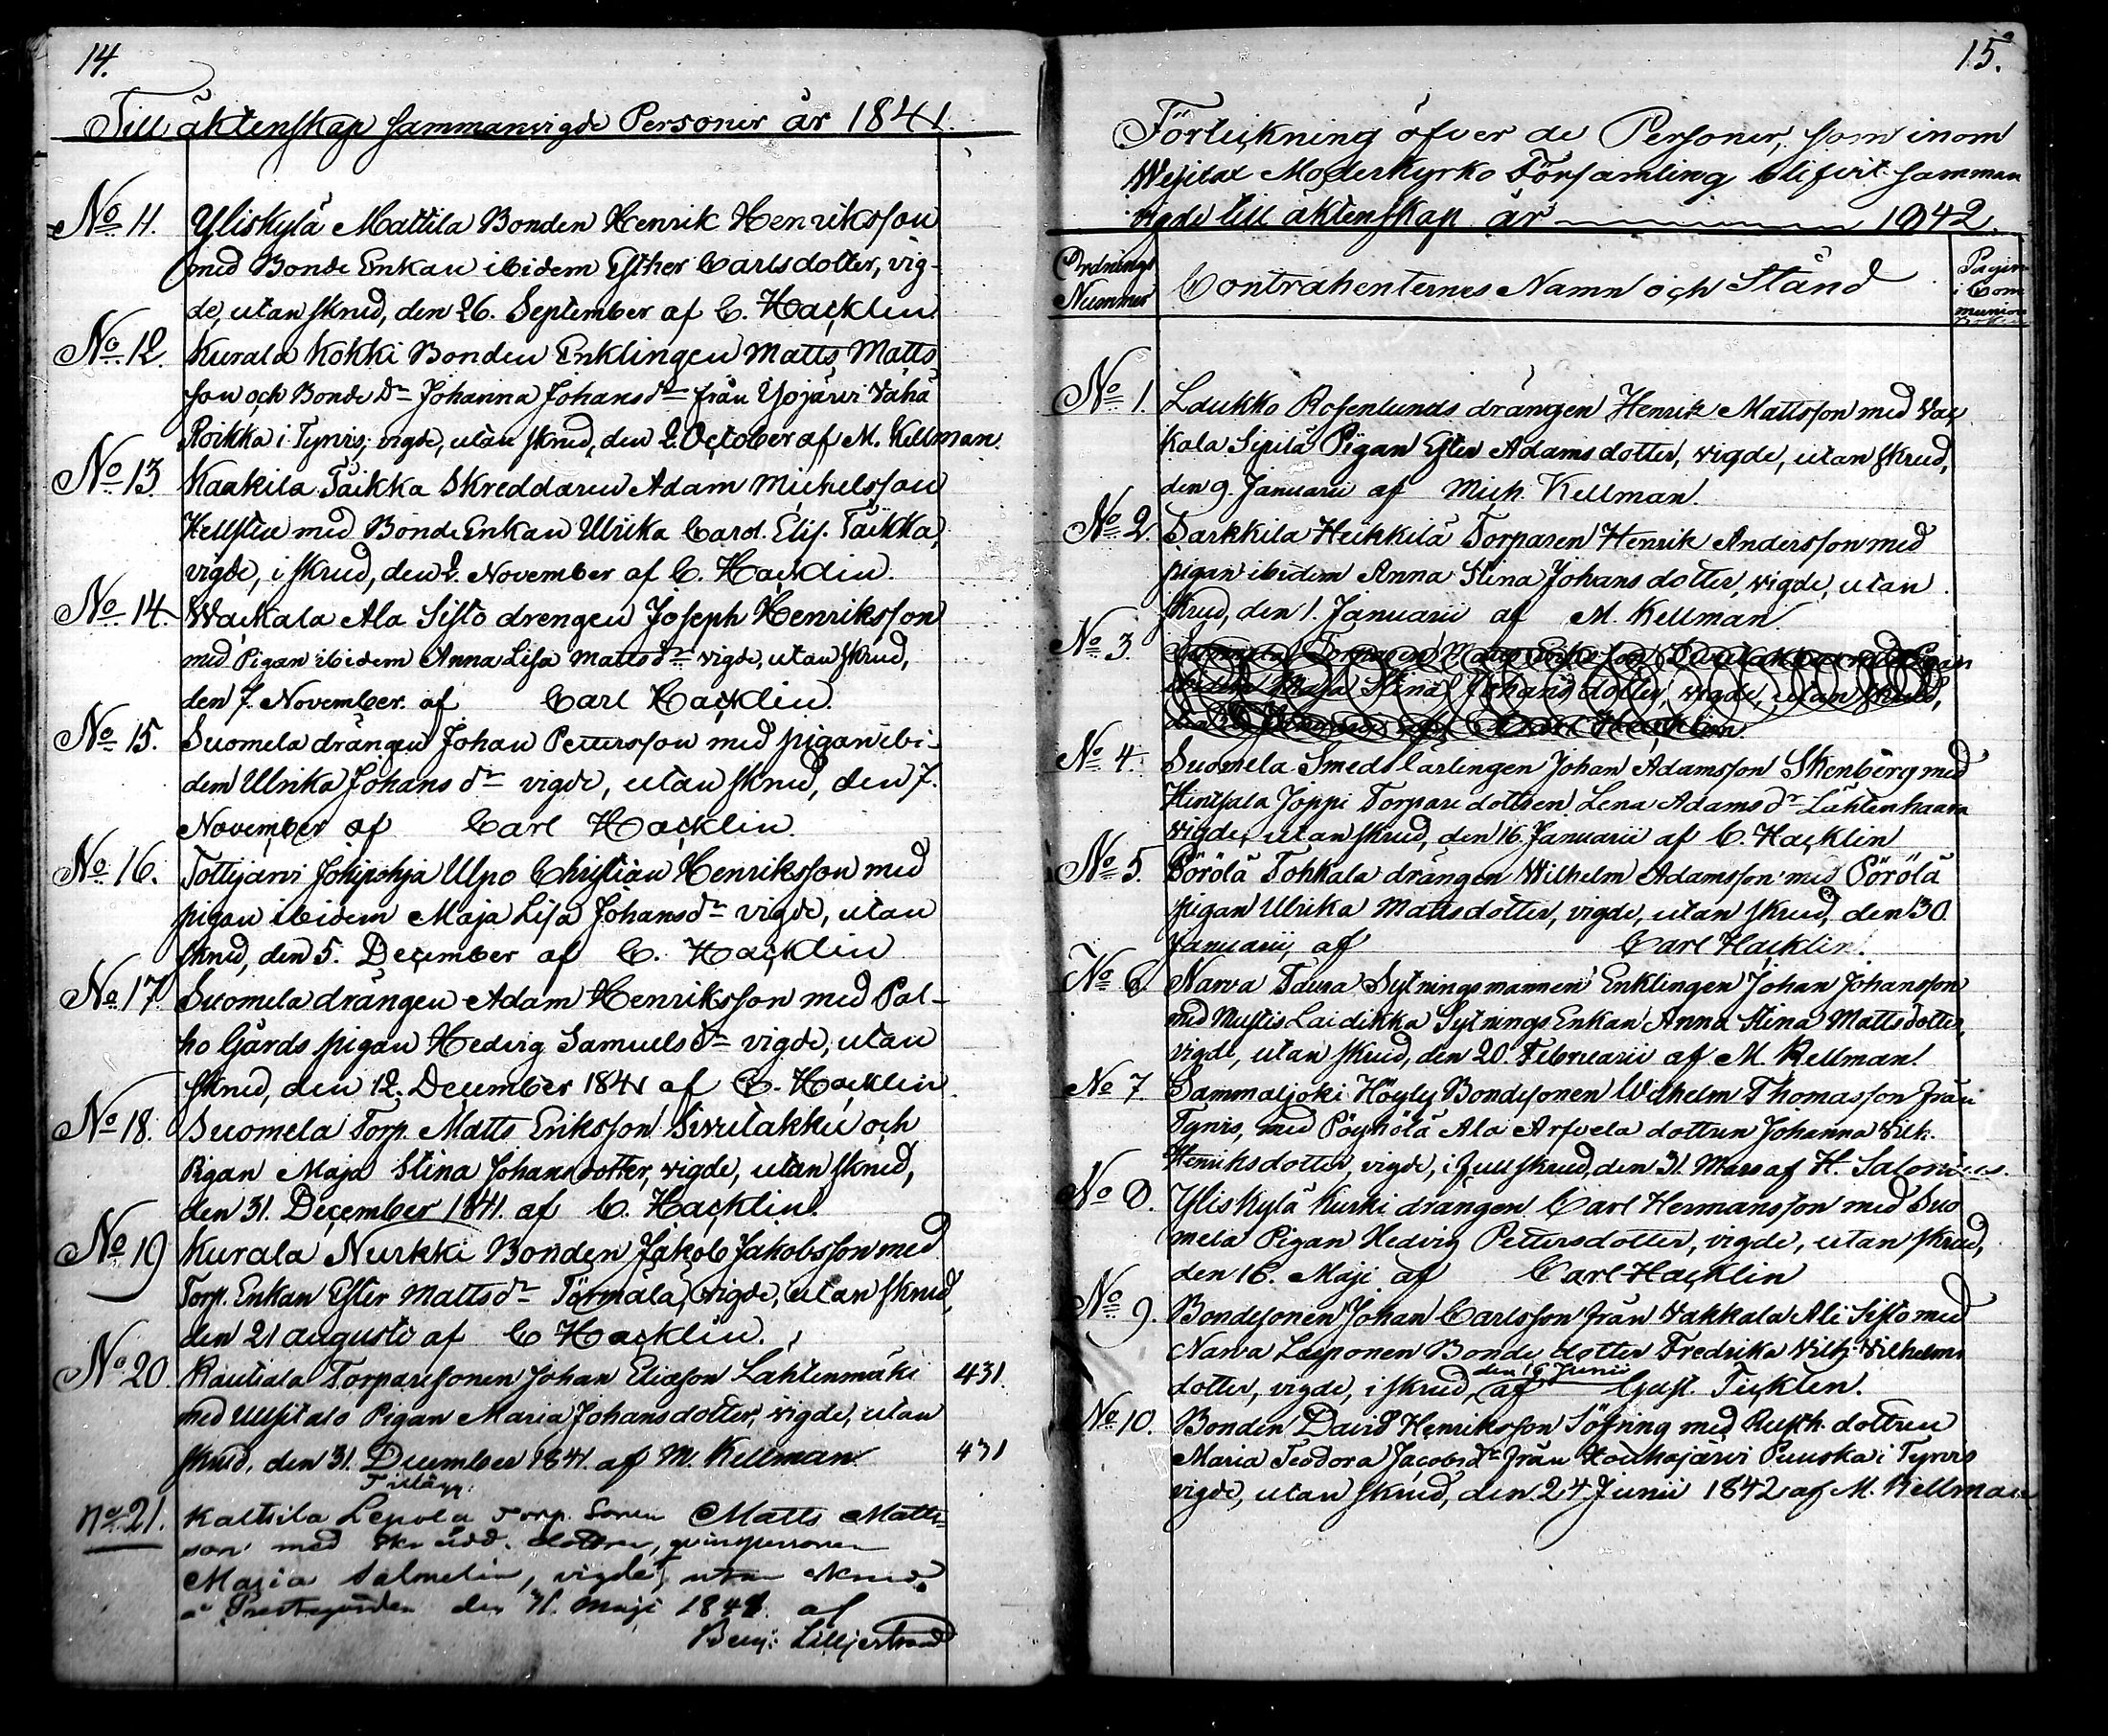 14.
Till äktenskap sammanvigde Personer år 1841.
No 11. Yliskylä Mattila Bonden Henrik Henriksson
med Bonde Enkan ibidem Esther Carlsdotter, vig-
de, utan skrud, den 26. September af C. Hacklin
No 12. Kurala Kokki Bonden Enklingen Matts Matts
son och Bonde dr Johanna Johansdr från Yojärvi Vähä
Roikka i Tyrvis, vigde, utan skrud, den 2 October af M. Kellman.
No 13 Kaakila Taikka Skreddaren Adam Michelsson
Hellsten med Bonde Enkan Ulrika Carol. Elis. Taikka,
vigde, i skrud, den 2. November af C. Hacklin.
No 14. Wackala Ala Sisto drengen Joseph Henriksson
med Pigan ibidem Anna Lisa Mattsdr vigde, utan skrud,
den 7. November. af Carl Hacklin.
No 15. Suomela drängen Johan Pettersson med pigan ibi-
dem Ulrika Johansdr vigde, utan skrud, den 7.
November af Carl Hacklin.
No 16. Tottijärvi Johipohja Ulpo Christian Henriksson med
pigan ibidem Maja Lisa Johansdr vigde, utan
skrud, den 5. December af C. Hacklin
No 17 Suomela drängen Adam Henriksson med Pal-
ho Gårds pigan Hedvig Samuelsdr vigde, utan
skrud, den 12. December 1841 af C. Hacklin.
No 18. Suomela Torp. Matts Eriksson Sivulakku och
Pigan Maja Stina Johansdotter, vigde, utan skrud,
den 31. December 1841. af C. Hacklin.
No 19 Kurala Nurkki Bonden Jakob Jakobsson med
Torp. Enkan Ester Mattsdr Törmälä, vigde, utan skrud,
den 21 augusti af C Hacklin.
No 20. Rautiala Torparesonen Johan Eliasson Lahtenmäki 431.
med Ullsitalo Pigan Maria Johansdotter, vigde, utan
skrud, den 31. December 1841. af M. Kellman 431
Tillägg:
No 21. Kaltsila Lepola Torp. Sonen Matts Matts-
son med dottren, qvinspersonen
Maria Salmelin, vigde, utan skrud.
å Prestegården den 31. Maji 1841. af
Benj: Lilljestrand
15.
Förteckning öfver de Personer, som inom
Wesilax Moderkyrko Församling blifvit samman
vigde till äktenskap år 1842.
Ordnings Nummer
Contrahenternes Namn och Stånd
Pagin i Com munion Boken
No 1. Laukko Rosenlunds drängen Henrik Mattsson med Vac
kala Sipilä Pigan Ester Adamsdotter, vigde, utan skrud,
den 9. Januarii af Mich. Kellman.
No 2. Sarkkila Heikkilä Torparen Henrik Andersson med
pigan ibidem Anna Stina Johansdotter, vigde, utan
skrud, den 1. Januarii af M. Kellman.
No 3. Suomela Torparen Matts Eriksson Sivulakku med Pigan
ibidem Maja Stina Johansdotter, vigde, utan skrud,
Carl Hacklin.
No 4. Suomela Smeds lärlingen Johan Adamsson Stenberg med
Hinsala Joppi Torpare dottren Lena Adamsdr Lähtenhaara
vigde, utan skrud, den 16. Januarii af C. Hacklin
No 5. Pörölä Tohkala drängen Wilhelm Adamsson med Pörölä
pigan Ulrika Mattsdotter, vigde, utan skrud, den 30.
Januarii, af Carl Hacklin.
No 6 Narva Taura Sytningsmannen Enklingen Johan Johansson
med Mustis Laidikka Sytnings Enkan Anna Stina Mattsdotter,
vigde, utan skrud, den 20. Februarii af M. Kellman.
No 7. Sammaljoki Höyly Bondesonen Wilhelm Thomasson från
Tyrvis, med Pöyhölä Ala Arfvela dottren Johanna Vilh.
Henriksdotter, vigde, i full skrud, den 31. Mars af H. Salonius.
No 8. Yliskylä Kurki drängen Carl Hermansson med Suo
mela Pigan Hedvig Pettersdotter, vigde, utan skrud,
den 16. Maji af Carl Hacklin
No 9. Bondesonen Johan Carlsson från Vakkala Ali Sisto med
Narva Lepponen Bonde dotter Fredrika Vilh. Vilhelms
dotter, vigde, i skrud, den 16 Junii af Gust. Ticklen.
No 10. Bonden David Henriksson Söfring med Rusth. dottren
Maria Teodora Jacobsdr från Houhajärvi Puuska i Tyrvis
vigde, utan skrud, den 24 Junii 1842 af M. Kellman